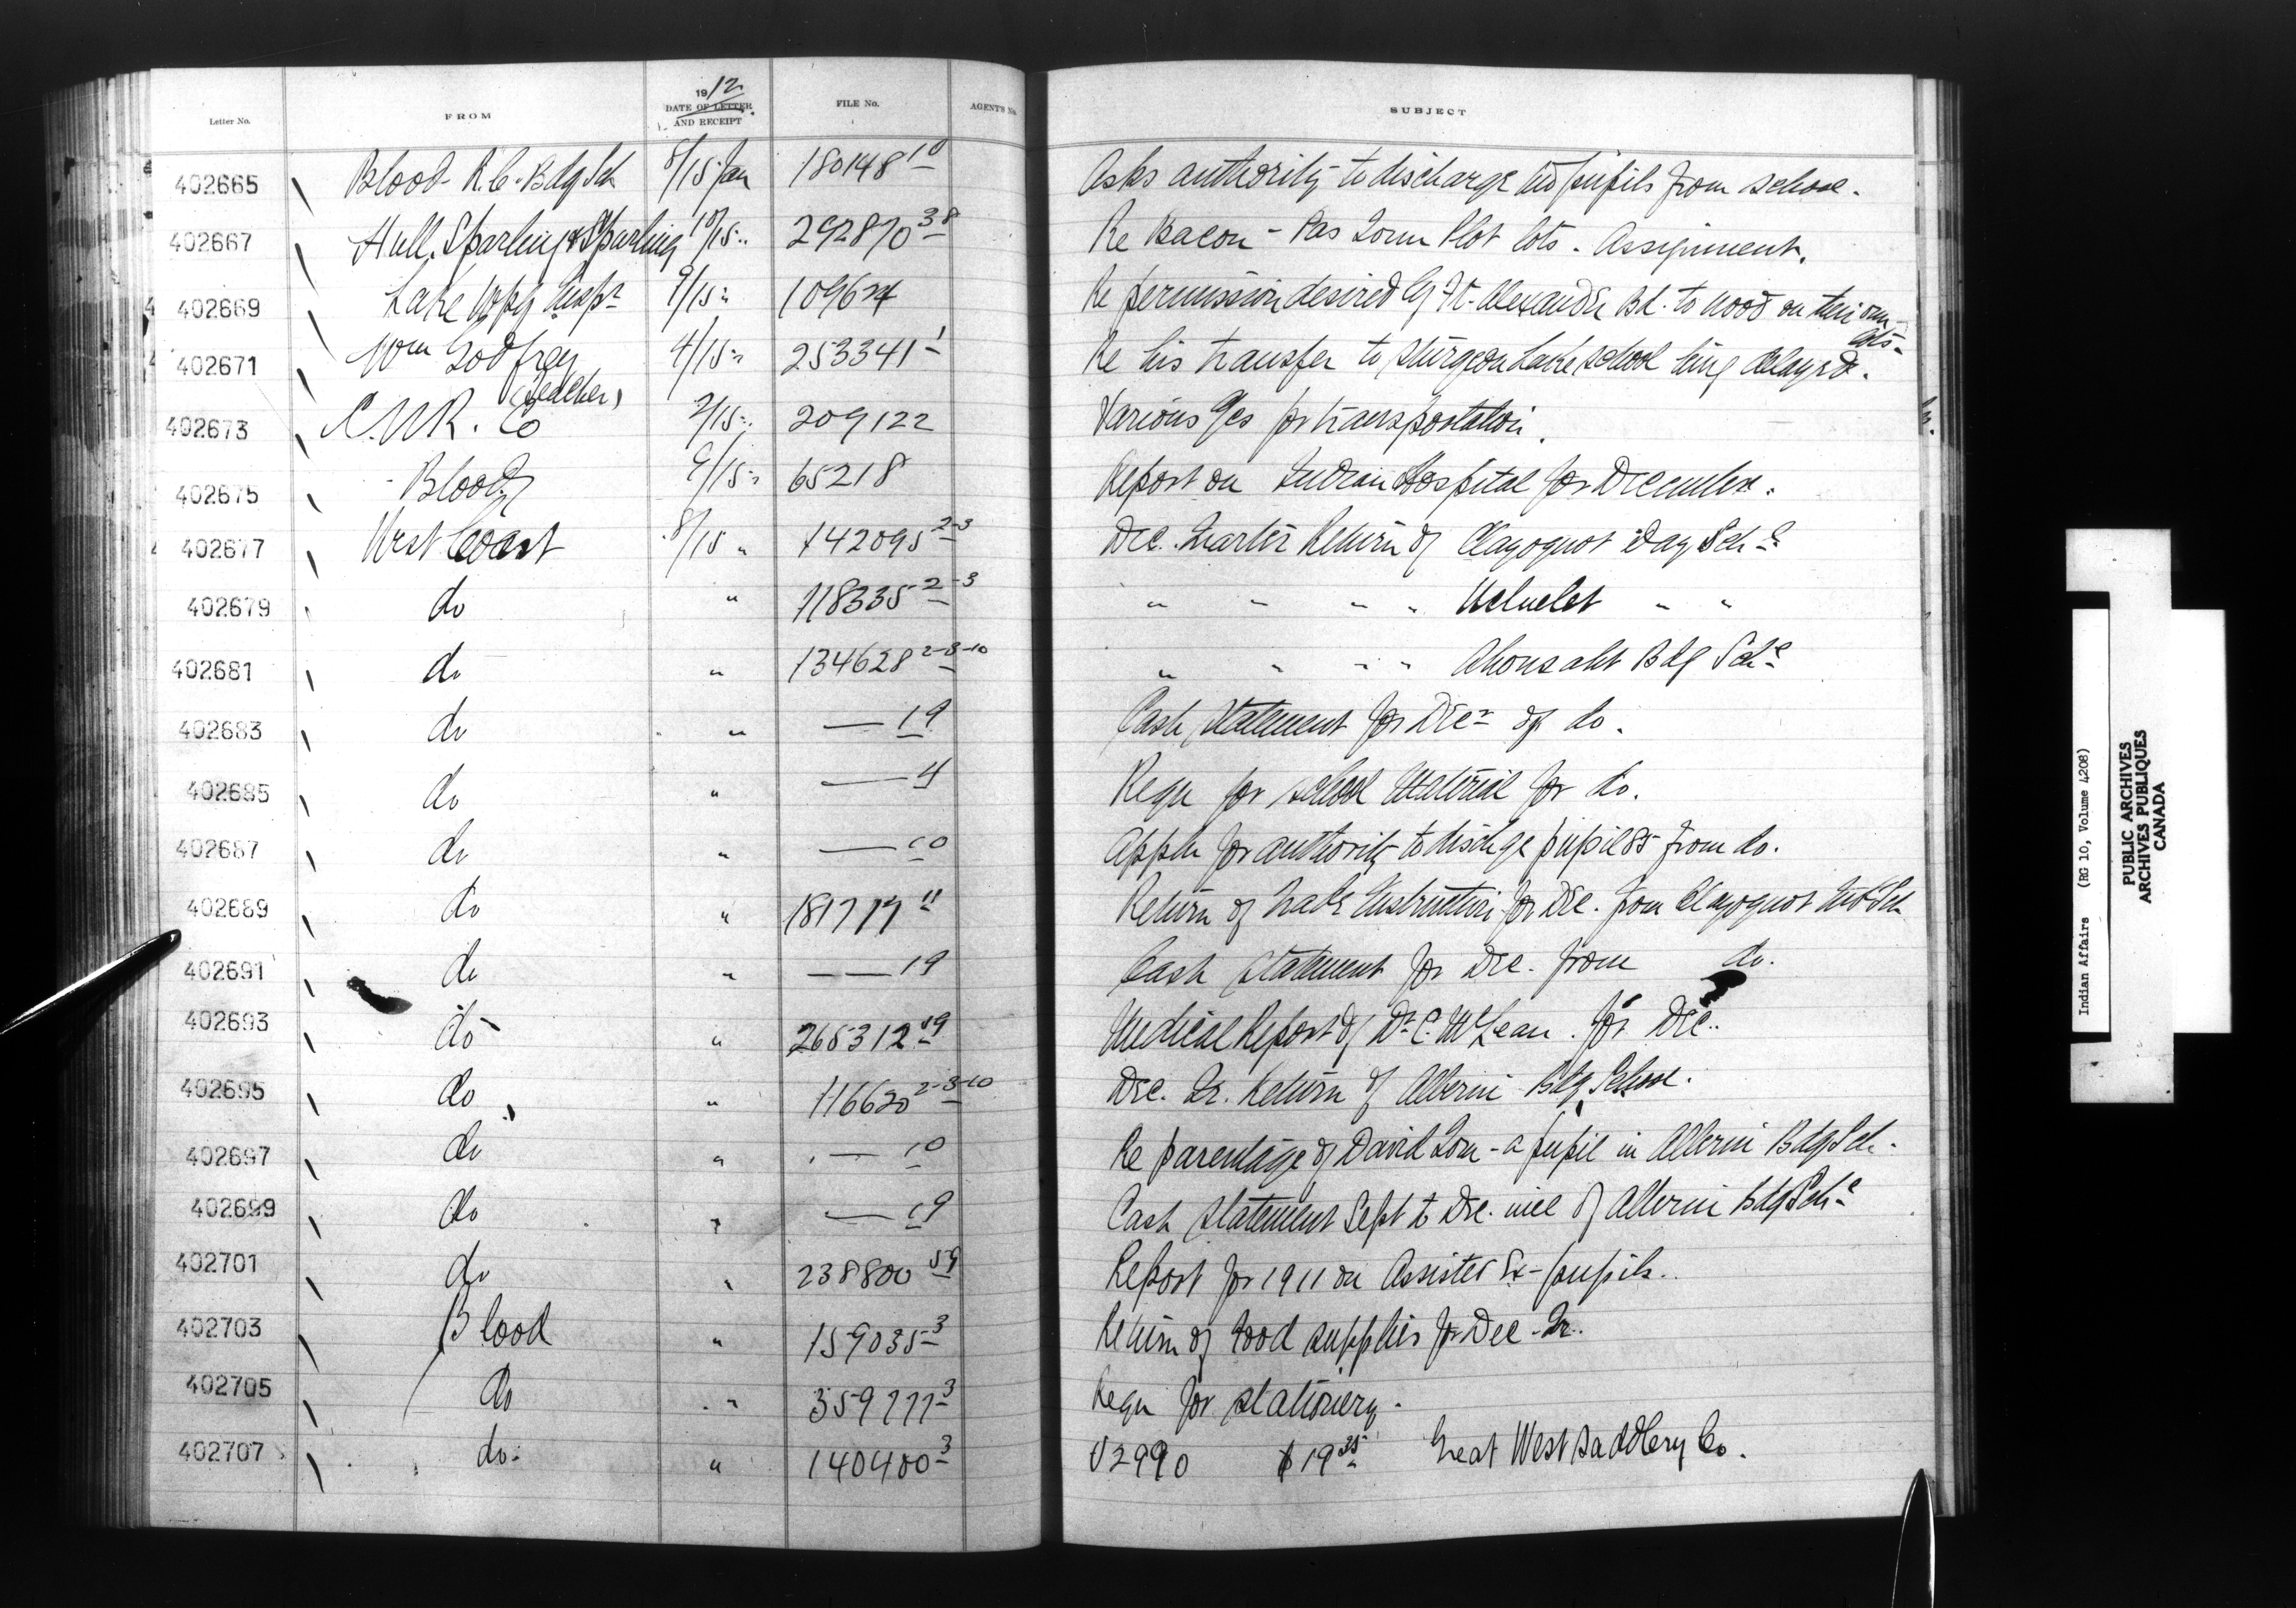 Letter No. FROM 1912 DATE OF LETTER AND RECEIPT FILE No. AGENT'S No. SUBJECT
402665 Blood R.C. Bdg Sch 8/15 Jan 180148 10 Asks authority to discharge two pupils from school.
402667 Hull, Sparling & Sparling 10/15 " 292870 38 Re Bacon - Pas Town Plot lots - Assignment.
402669 Lake Wpg Insp r 9/15 " 10962 Re permission desired by Ft. Alexander Bd. to wood on their own lots -
402671 Wm Godfrey (Teacher) 4/15 " 253341 1 Re his transfer to Sturgeon Lake school being delayed.
402673 C.N.R. Co 2/15 " 209122 Various for transportation.
402675 Blood 9/15 " 65218 Report on Indian Hospital for December.
402677 West Coast 8/15 " 142095 2-3 Dec. Quarter Return of Clayoquot Day Sch l
402679 do " 118335 2-3 " " " " Ucluelet " "
402681 do " 134628 2-3-10 " " " " Ahousaht Bdg Sch l
402683 do " — 19 Cash Statement for Dec r of do.
402685 do " — 4 Requ for school material for do.
402687 do " — 10 Appln for authority to dischge pupil 85 from do.
402689 do " 181777 11 Return of Trade Instruction for Dec. from Clayoquot Ind Sch
402691 do " — 19 Cash Statement for Dec. from do.
402693 do " 265312 19 Medical Report of Dr C. McLean for Dec.
402695 do " 116620 2-3-10 Dec. Qr. Return of Alberni Bdg School.
402697 do " — 10 Re parentage of David Tom - a pupil in Alberni Bdg Sch -
402699 do " — 19 Cash Statement Sept to Dec. incl of Alberni Bdg Sch l
402701 do " 238800 59 Report for 1911 on Assisted Ex-pupils.
402703 Blood " 159035 3 Return of Food supplies for Dec. Qr.
402705 do " 359777 3 Requ for stationery.
402707 do. " 140400 3 V2990 $19 35 Great West Saddlery Co.
Indian Affairs (RG 10, Volume 4208)
PUBLIC ARCHIVES
ARCHIVES PUBLIQUES
CANADA